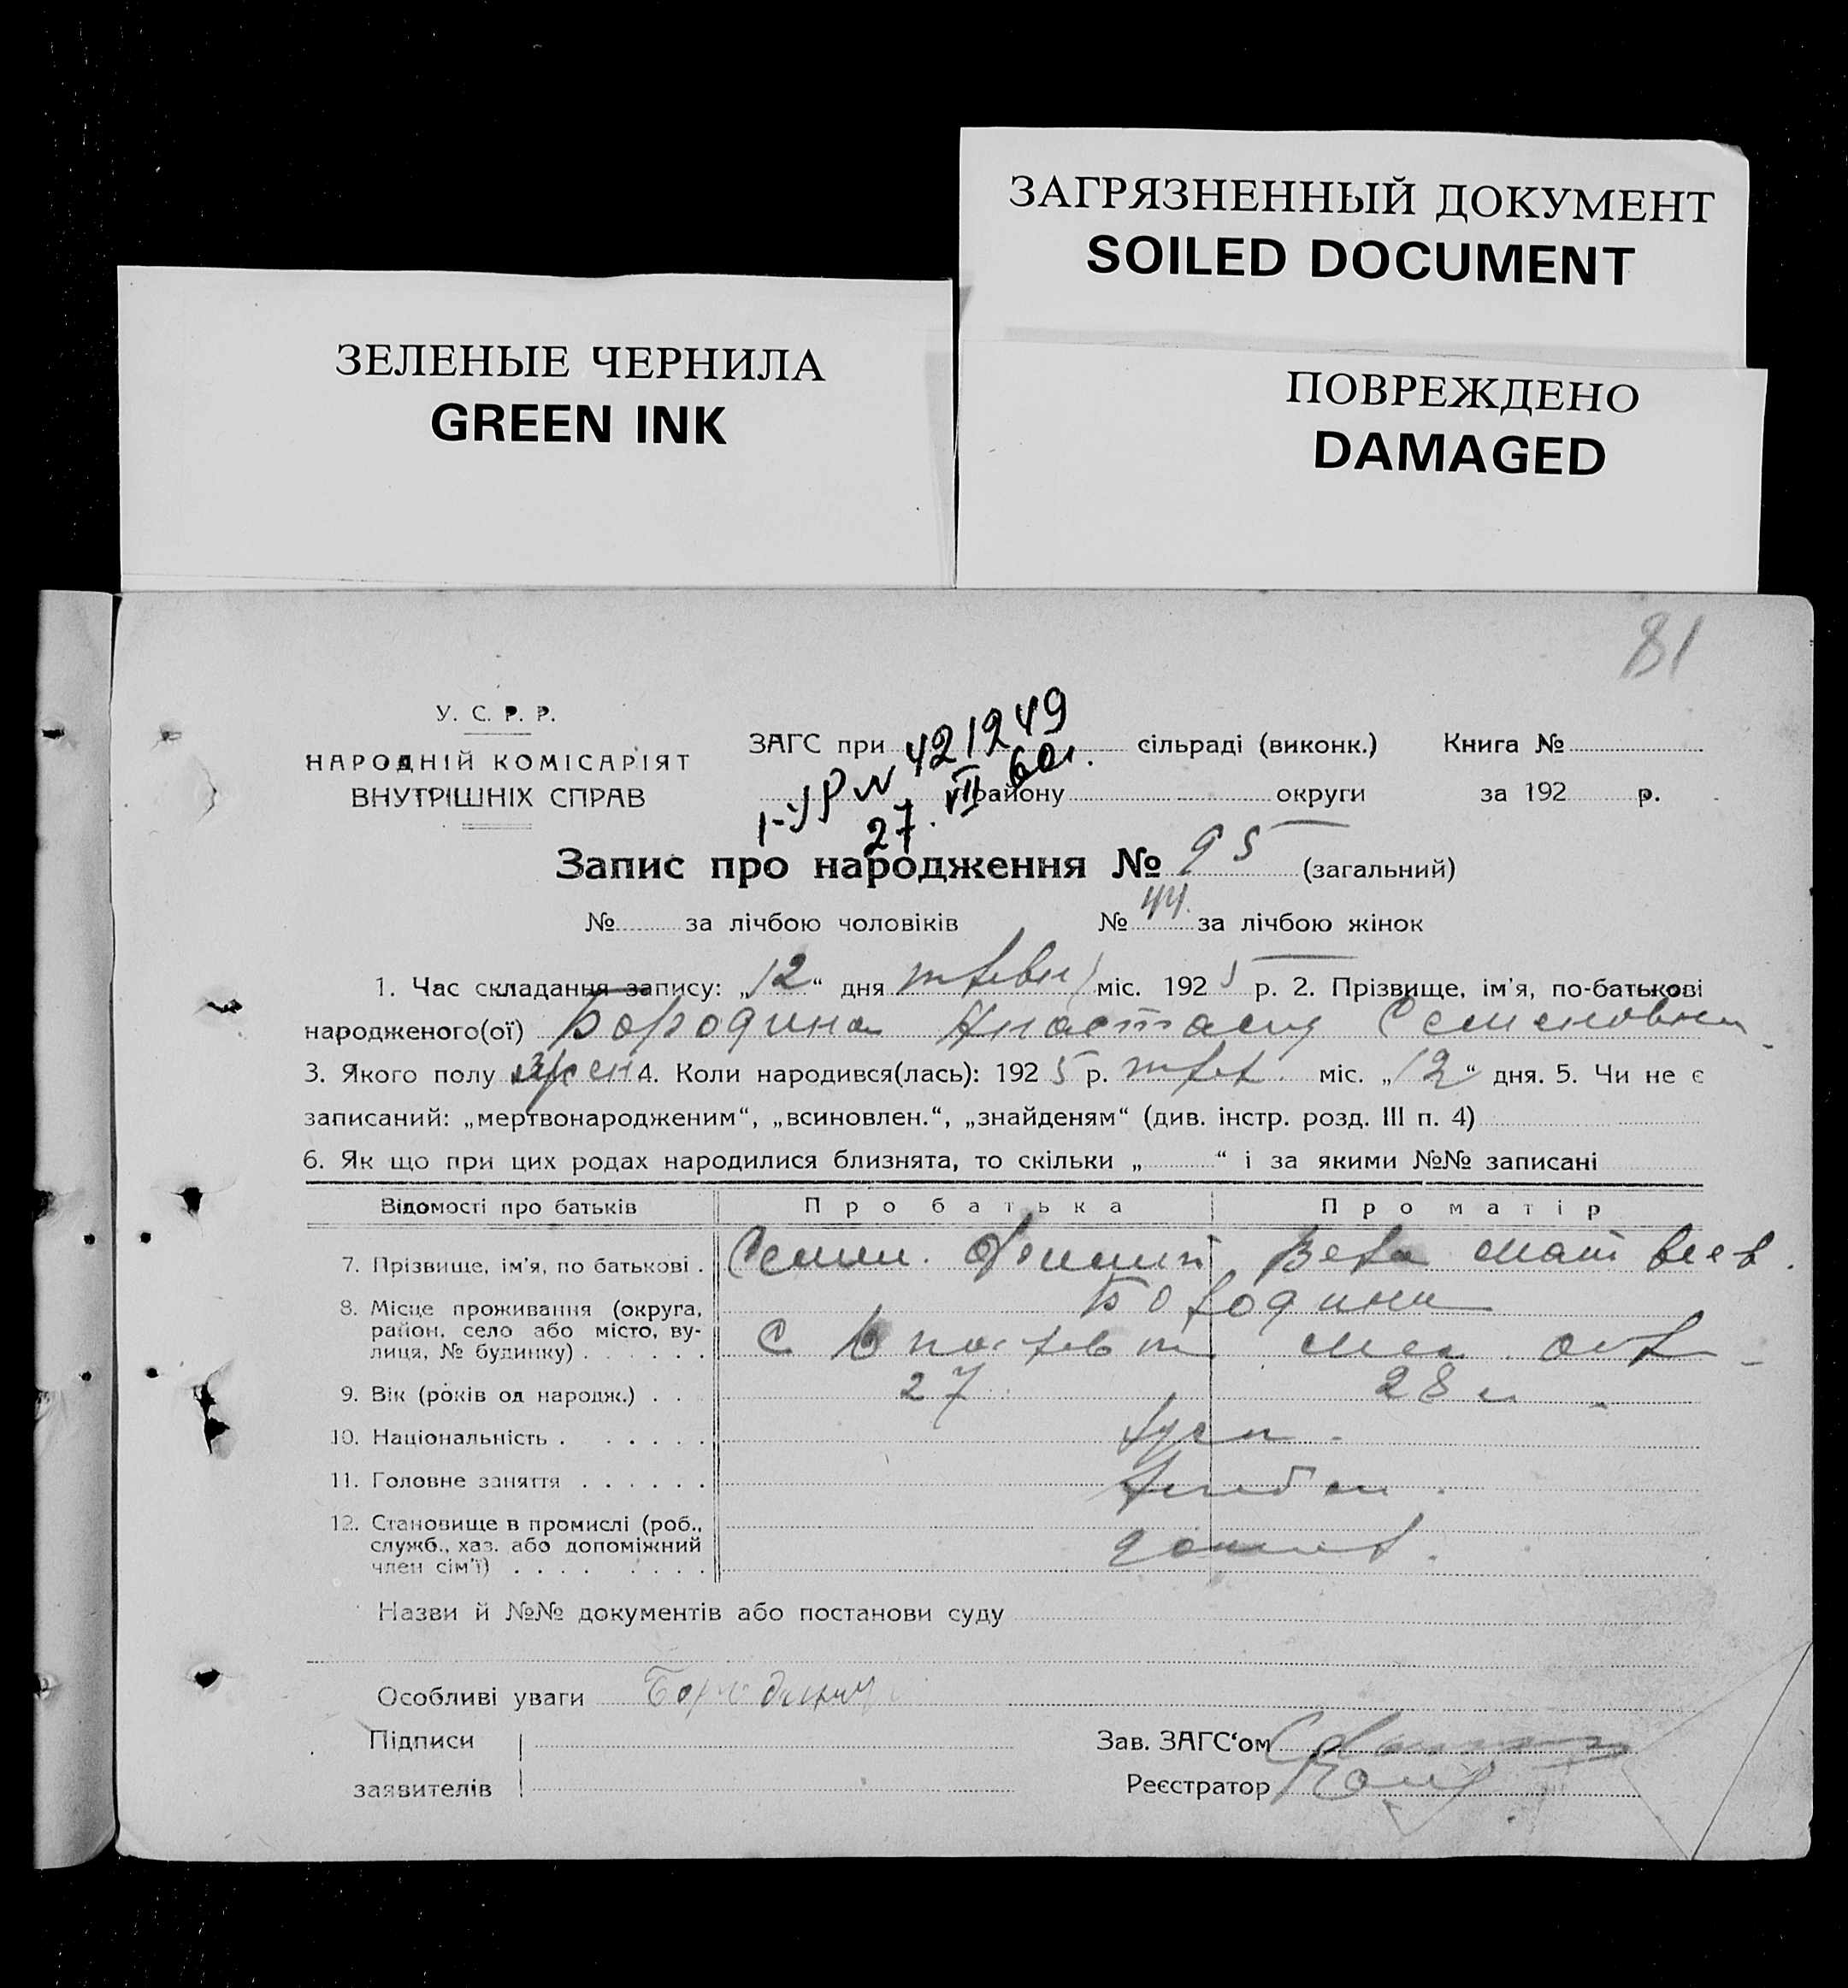 ЗАГРЯЗНЕННЫЙ ДОКУМЕНТ
SOILED DOCUMENT
ЗЕЛЕНЫЕ ЧЕРНИЛА
GREEN INK
ПОВРЕЖДЕНО
DAMAGED
81
У. С. Р. Р.
НАРОДНІЙ КОМІСАРІЯТ
ВНУТРІШНІХ СПРАВ
ЗАГС при сільраді (виконк.) Книга №
421249
району округи за 192 р.
27. VII 60г.
Запис про народження № 95 (загальний)
№ за лічбою чоловіків № 44 за лічбою жінок
1. Час складання запису: „12“ дня міс. 1925 р. 2. Прізвище, ім'я, по-батькові
народженого(ої) Бородина Анастасия Семеновна
3. Якого полу жен 4. Коли народився(лась): 1925 р. міс. „12“ дня. 5. Чи не є
записаний: „мертвонародженим“, „всиновлен.“, „знайденям“ (див. інстр. розд. III п. 4)
6. Як що при цих родах народилися близнята, то скільки „ “ і за якими №№ записані
Відомості про батьків Про батька Про матір
7. Прізвище, ім'я, по батькові . Семен. Вера Матвеев.
Бородины
8. Місце проживання (округа,
район, село або місто, ву-
лиця, № будинку) . . . . . . С
9. Вік (років од народж.) . . 27 28
10. Національність . . . . . . русск.
11. Головне заняття . . . . . .
12. Становище в промислі (роб.,
служб., хаз. або допоміжний
член сім'ї) . . . . . . . .
Назви й №№ документів або постанови суду
Особливі уваги
Підписи Зав. ЗАГС'ом
заявителів Реєстратор